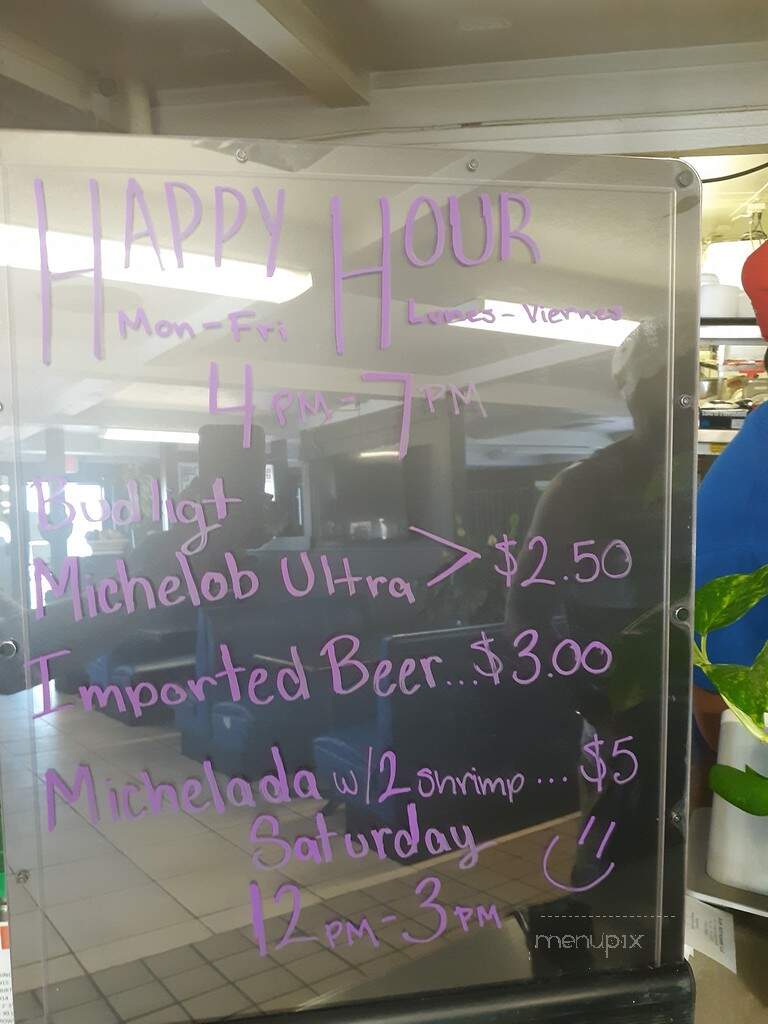 HAPPY HOUR
Mon-Fri Lunes-Viernes
4PM-7PM
Budligt
Michelob Ultra > $2.50
Imported Beer...$3.00
Michelada w/2 shrimp...$5
Saturday
12PM-3PM
menupix